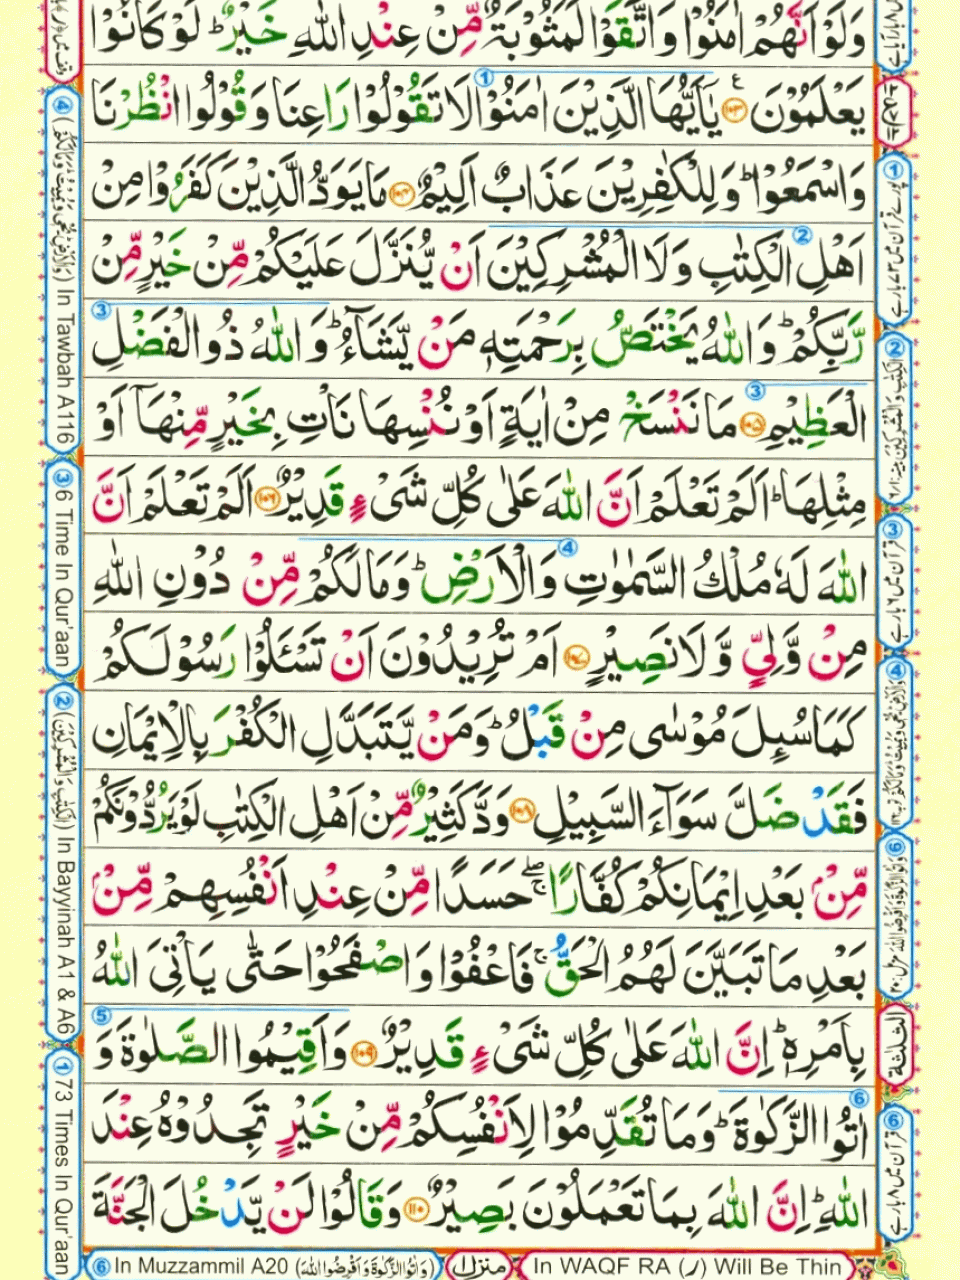 وَلَوْ اَنَّهُمْ اٰمَنُوْا وَاتَّقَوْا لَمَثُوْبَةٌ مِّنْ عِنْدِ اللّٰهِ خَيْرٌ ؕ لَوْ كَانُوْا
يَعْلَمُوْنَ ﴿۱۰۳﴾ يٰۤاَيُّهَا الَّذِيْنَ اٰمَنُوْا لَا تَقُوْلُوْا رَاعِنَا وَقُوْلُوا انْظُرْنَا
وَاسْمَعُوْا ؕ وَلِلْكٰفِرِيْنَ عَذَابٌ اَلِيْمٌ ﴿۱۰۴﴾ مَا يَوَدُّ الَّذِيْنَ كَفَرُوْا مِنْ
اَهْلِ الْكِتٰبِ وَلَا الْمُشْرِكِيْنَ اَنْ يُّنَزَّلَ عَلَيْكُمْ مِّنْ خَيْرٍ مِّنْ
رَّبِّكُمْ ؕ وَاللّٰهُ يَخْتَصُّ بِرَحْمَتِهٖ مَنْ يَّشَآءُ ؕ وَاللّٰهُ ذُو الْفَضْلِ
الْعَظِيْمِ ﴿۱۰۵﴾ مَا نَنْسَخْ مِنْ اٰيَةٍ اَوْ نُنْسِهَا نَاْتِ بِخَيْرٍ مِّنْهَاۤ اَوْ
مِثْلِهَا ؕ اَلَمْ تَعْلَمْ اَنَّ اللّٰهَ عَلٰى كُلِّ شَیْءٍ قَدِيْرٌ ﴿۱۰۶﴾ اَلَمْ تَعْلَمْ اَنَّ
اللّٰهَ لَهٗ مُلْكُ السَّمٰوٰتِ وَالْاَرْضِ ؕ وَمَا لَكُمْ مِّنْ دُوْنِ اللّٰهِ
مِنْ وَّلِيٍّ وَّلَا نَصِيْرٍ ﴿۱۰۷﴾ اَمْ تُرِيْدُوْنَ اَنْ تَسْئَلُوْا رَسُوْلَكُمْ
كَمَا سُئِلَ مُوْسٰى مِنْ قَبْلُ ؕ وَمَنْ يَّتَبَدَّلِ الْكُفْرَ بِالْاِيْمَانِ
فَقَدْ ضَلَّ سَوَآءَ السَّبِيْلِ ﴿۱۰۸﴾ وَدَّ كَثِيْرٌ مِّنْ اَهْلِ الْكِتٰبِ لَوْ يَرُدُّوْنَكُمْ
مِّنْۢ بَعْدِ اِيْمَانِكُمْ كُفَّارًا ۖۚ حَسَدًا مِّنْ عِنْدِ اَنْفُسِهِمْ مِّنْۢ
بَعْدِ مَا تَبَيَّنَ لَهُمُ الْحَقُّ ۚ فَاعْفُوْا وَاصْفَحُوْا حَتّٰى يَاْتِیَ اللّٰهُ
بِاَمْرِهٖ ؕ اِنَّ اللّٰهَ عَلٰى كُلِّ شَیْءٍ قَدِيْرٌ ﴿۱۰۹﴾ وَاَقِيْمُوا الصَّلٰوةَ وَ
اٰتُوا الزَّكٰوةَ ؕ وَمَا تُقَدِّمُوْا لِاَنْفُسِكُمْ مِّنْ خَيْرٍ تَجِدُوْهُ عِنْدَ
اللّٰهِ ؕ اِنَّ اللّٰهَ بِمَا تَعْمَلُوْنَ بَصِيْرٌ ﴿۱۱۰﴾ وَقَالُوْا لَنْ يَّدْخُلَ الْجَنَّةَ
④ In Tawbah A116
③ 6 Time In Qur'aan
② (الْكِتٰبِ وَالْمُشْرِكِيْنَ) In Bayyinah A1 & A6
① 73 Times In Qur'aan
الثلثة
⑥ In Muzzammil A20 (وَاٰتُوا الزَّكٰوةَ وَاَقْرِضُوا اللّٰهَ)
منزل ۱
In WAQF RA (ر) Will Be Thin